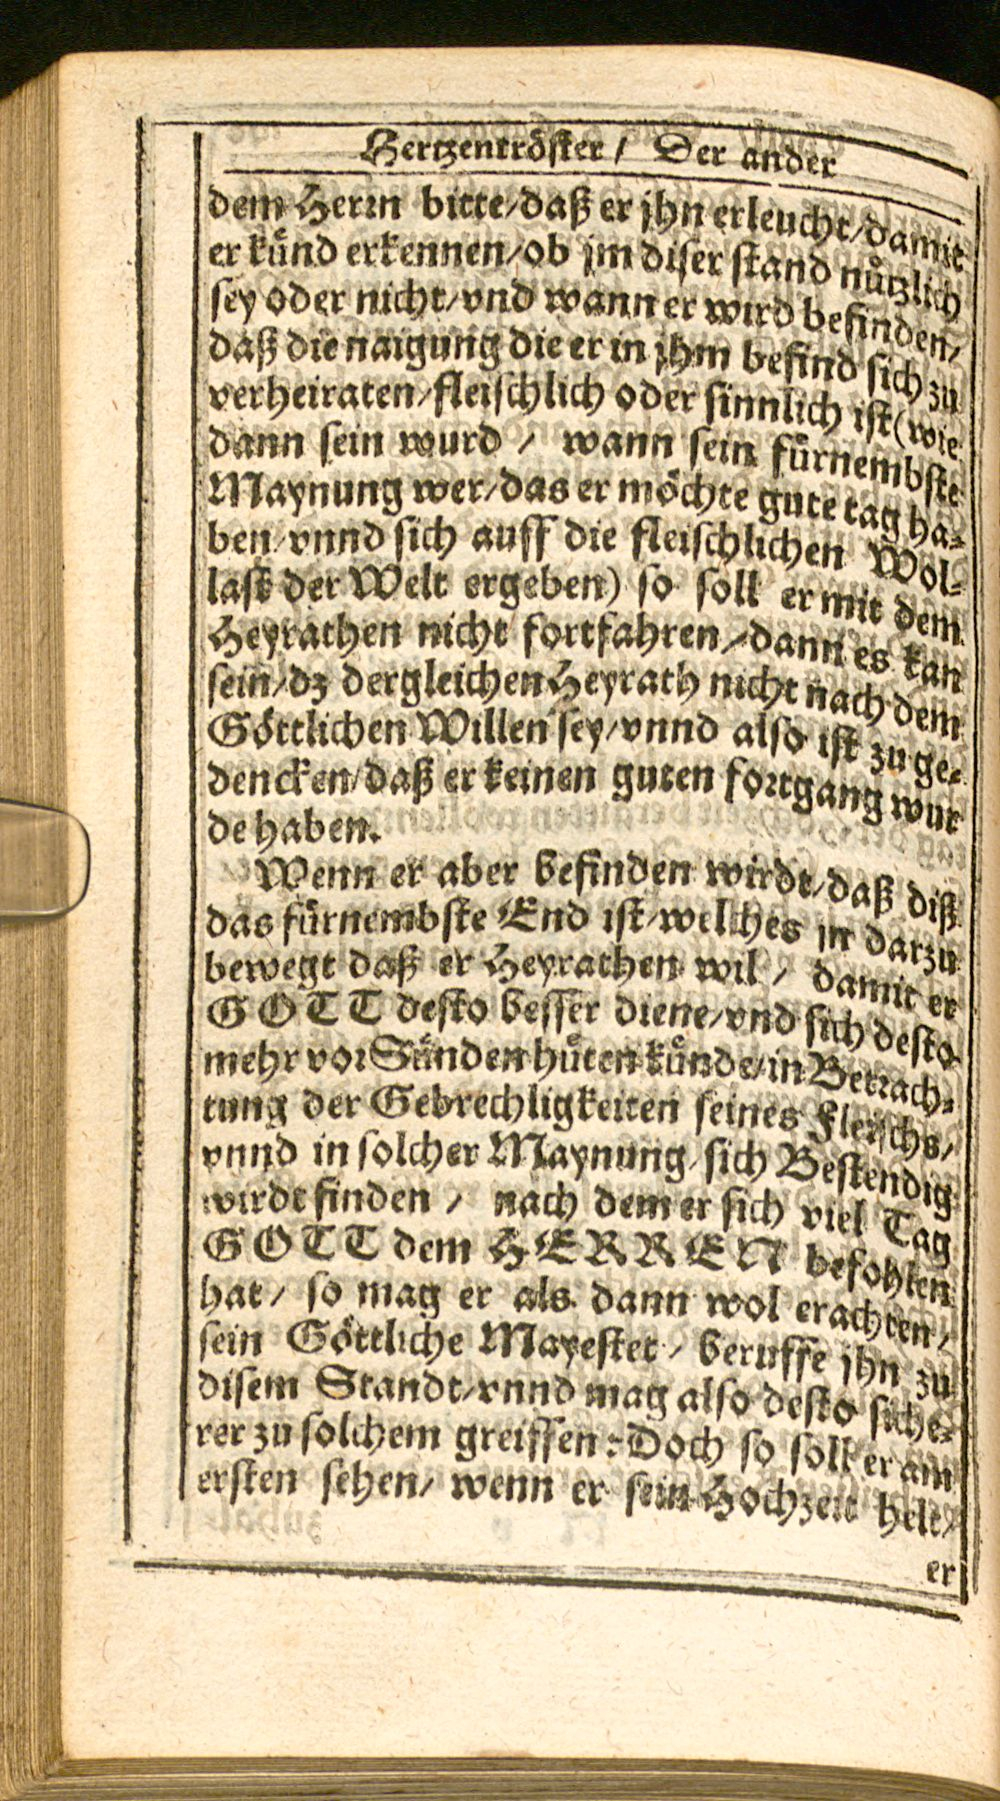 Hertzentröster / Der ander
dem Herrn bitte/daß er jhn erleucht/damit
er künd erkennen/ob jm diser stand nützlich
sey oder nicht/vnd wann er wird befinden/
daß die naigung die er in jhm befind sich zu
verheiraten/fleischlich oder sinnlich ist(wie
dann sein wurd / wann sein fürnembste
Maynung wer/das er möchte gute tag ha-
ben/vnnd sich auff die fleischlichen Wol-
last der Welt ergeben) so soll er mit dem
Heyrathen nicht fortfahren/dann es kan
sein/dz dergleichen Heyrath nicht nach dem
Göttlichen Willen sey/vnnd also ist zu ge-
dencken/daß er keinen guten fortgang wur
de haben.
Wenn er aber befinden wirdt/daß diß
das fürnembste End ist/welches jn darzu
bewegt daß er Heyrathen wil / damit er
GOTT desto besser diene/vnd sich desto
mehr vor Sünden hüten künde/in Betrach-
tung der Gebrechligkeiten seines Fleischs/
vnnd in solcher Maynung/sich Bestendig
wirdt finden / nach dem er sich viel Tag
GOTT dem HERREN befohlen
hat / so mag er als dann wol erachten/
sein Göttliche Mayestet / beruffe jhn zu
disem Standt/vnnd mag also desto siche-
rer zu solchem greiffen: Doch so soll er am
ersten sehen/ wenn er sein Hochzeit helt/
er